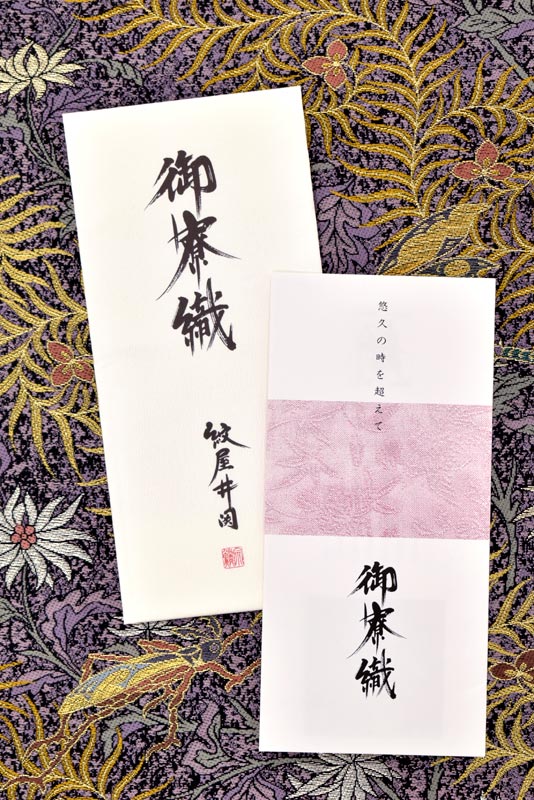 御寮織
紋屋井関
悠久の時を超えて
御寮織